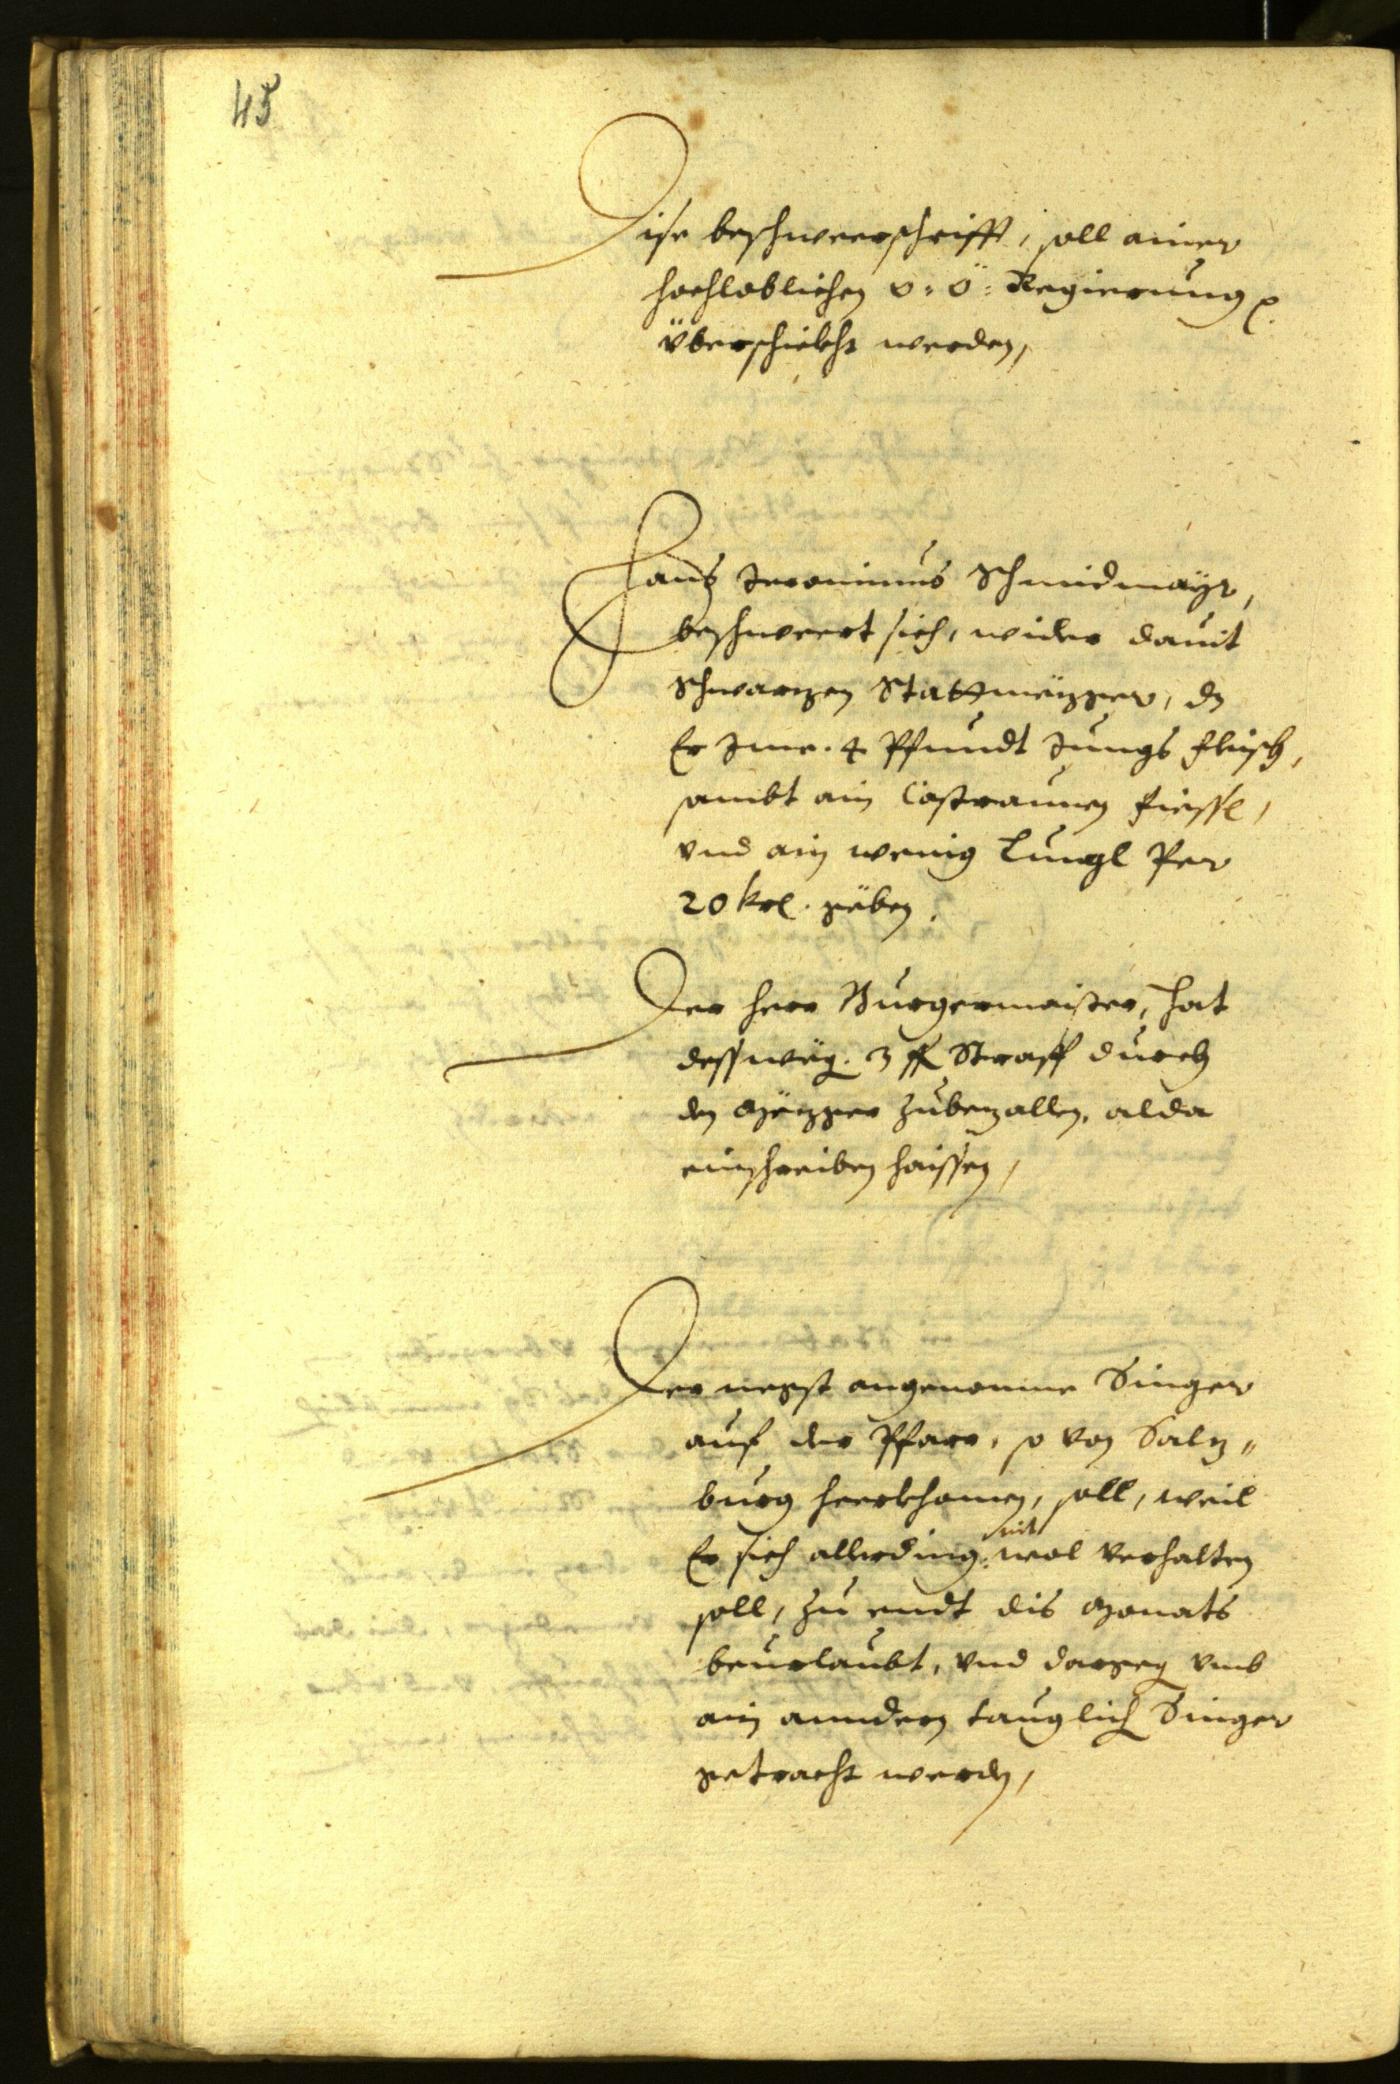 45
Dise beschweerschrifft, soll ainer
hochloblichen o: ö: Regierung
überschickht werden,
Hanß Jeronimus Schmidmayr,
beschweert sich, wider Dauit
Schwarzen Stattmezger, dz
Er Jme. 4 Pfundt Jungs fleisch,
sambt ain Castraunen fiessl,
vnd ain wenig Lungl Per
20 krl. geben.
Der herr Burgermaister, hat
desswég. 3 fl Straff durch
den Mezger zubezallen, alda
einschreiben haissen,
Der negst angenomne Singer
auf der Pfarr, so von Salz„
burg heerkhomen, soll, weil
Er sich allerding: nit wol verhalten
soll, zu endt dis Monats
beurlaubt, vnd dargeg vmb
ain anndern tauglich Singer
getracht werden,